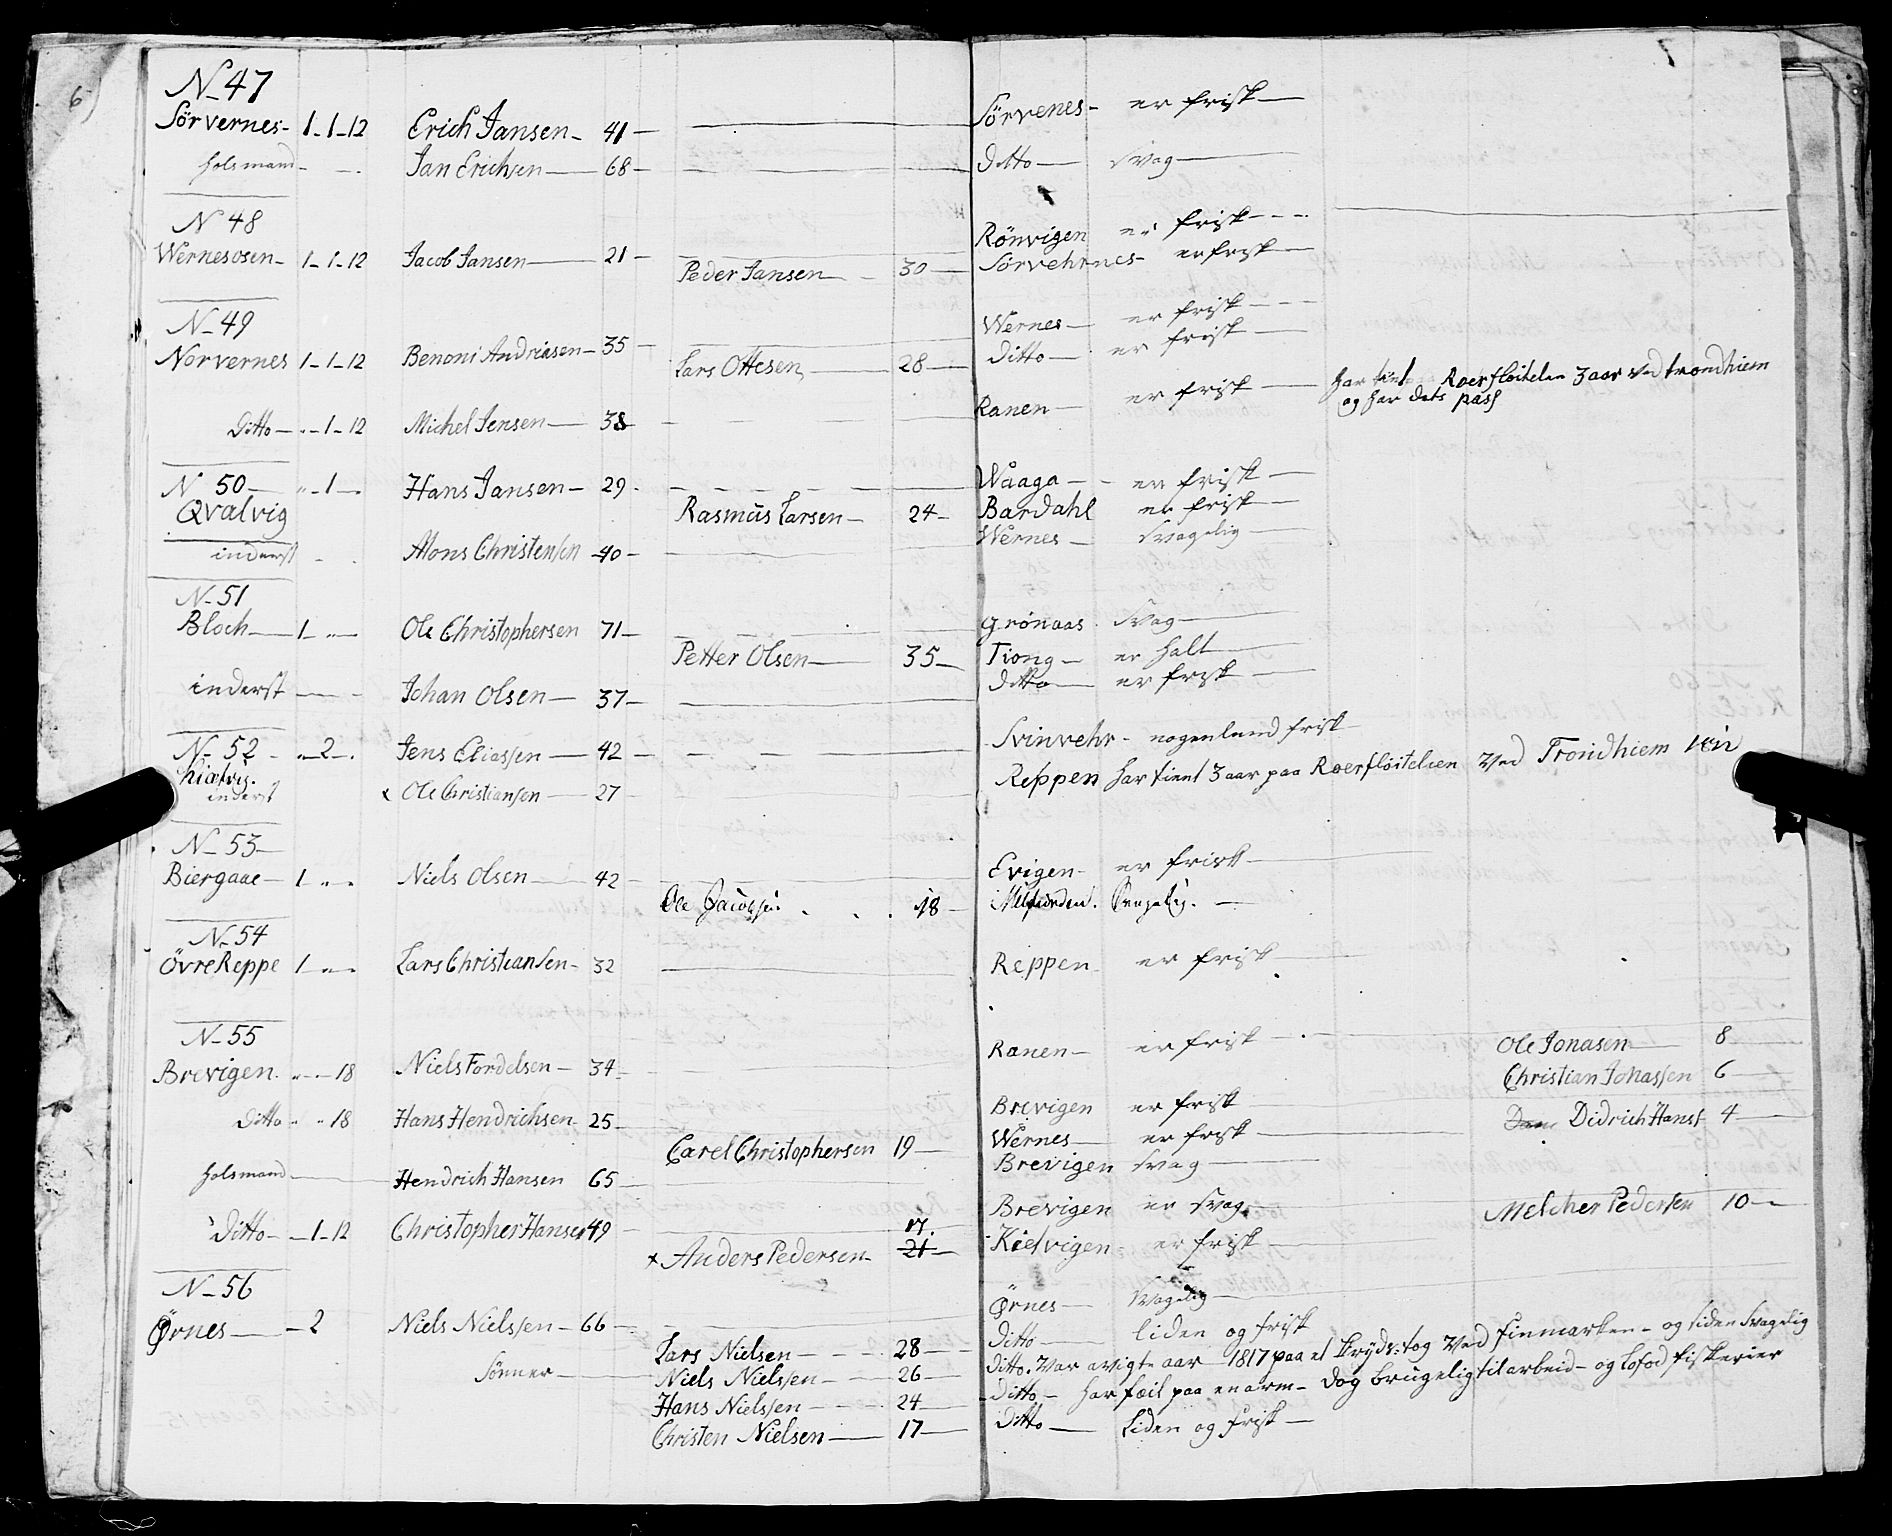 6
7
N 47
Sörvernes - 1 - 1 - 12 Erich Jansen - 41 - Sörvenes - er frisk
holsmand - Jan Erichsen - 68 - Ditto - svag
N 48
Wernesosen - 1 - 1 - 12 Jacob Jansen - 21 - Rönvigen er frisk
Peder Jansen - 30 - Sörvehrnes - er frisk
N 49
Norvernes 1 - 1 - 12 Benoni Andriasen - 35 - Wernes - er frisk
Lars Ottesen - 28 - ditto - er frisk
Ditto - " - 1 - 12 Michel Jensen - 38 - Ranen - er frisk - har tient Roerfløitelen 3 aar ved trondhiem
og har dets pass
N 50 " - 1 - Hans Jansen - 29 - Waaga - er frisk
Qvalvig Rasmus Larsen - 24 - Bardahl er frisk
inderst Mons Christensen 40 - Wernes - svagelig
N 51
Bloch - 1 - " - Ole Christophersen 71 - grönaas svag
Petter Olsen - 35 - Tiong - er halt
inderst - Johan Olsen - 37 - ditto - er frisk
N 52 - " - 2 - Jens Eliassen - 42 - Svinvehr - nogenlund frisk
Kiælvig.
inderst x Ole Christiansen - 27 - Reppen har tient 3 aar paa Roerfløitelsen ved Trondhiem
N 53
Biergaae - 1 " " Niels Olsen - 42 - Evigen - er frisk
Ole Jacobsen . . . 18 - Melfiorden. Svagelig.
N 54
Övre Reppe 1 " " Lars Christiansen - 32 - Reppen er frisk
N 55
Brevigen " - " - 18 Niels Fordelsen - 34 - Ranen - er frisk - Ole Jonasen - 8
Christian Johassen 6
ditto " " 18 Hans Hendrichsen 25 - Brevigen er frisk - Didrich Hanst 4
Carel Christophersen 19 - Wernes - er frisk
holsmand - Hendrich Hansen 65 - Brevigen svag
Ditto - " 1 - 12 Christopher Hansen 49 - Brevigen er svag - Melcher Pedersen 10
17.
x Anders Pedersen - 21 - Kielvigen er frisk
N 56
Ørnes - 2 Niels Nielssen - 66 - Ørnes - svagelig
Lars Nielsen - 28 - Ditto - liden og frisk
Sönner - Niels Nielssen - 26 - ditto. Var avigte aar 1817 paa et krydstog ved Finmarken - og siden svagelig
Hans Nielssen - 24 - ditto - har fæil paa en arm - dog brugelig til arbeid - og Lofod fiskerier
Christen Nielsen - 17 - Ditto - Liden og frisk